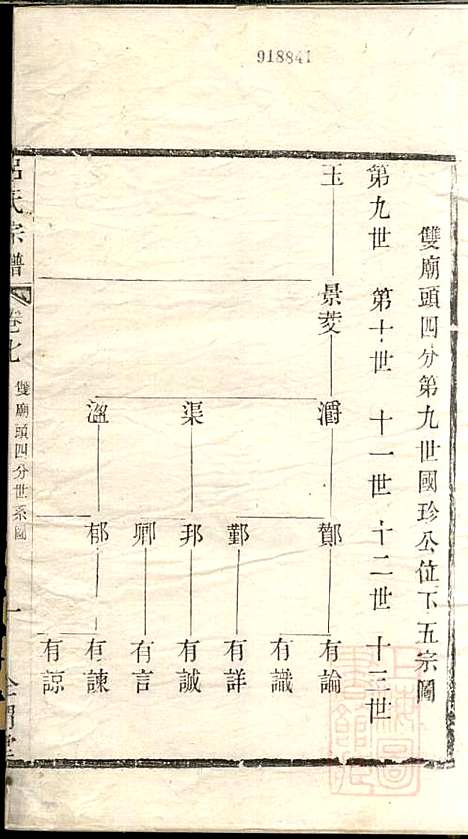 918841
雙廟頭四分第九世國珍公位下五宗圖
第九世 第十世 十一世 十二世 十三世
玉 景菱 灂 鄼 有論
有識
鄞 有詳
渠 邦 有誠
卿 有言
溫 郁 有諫
有諒
呂氏宗譜 卷七 雙廟頭四分世系圖 一